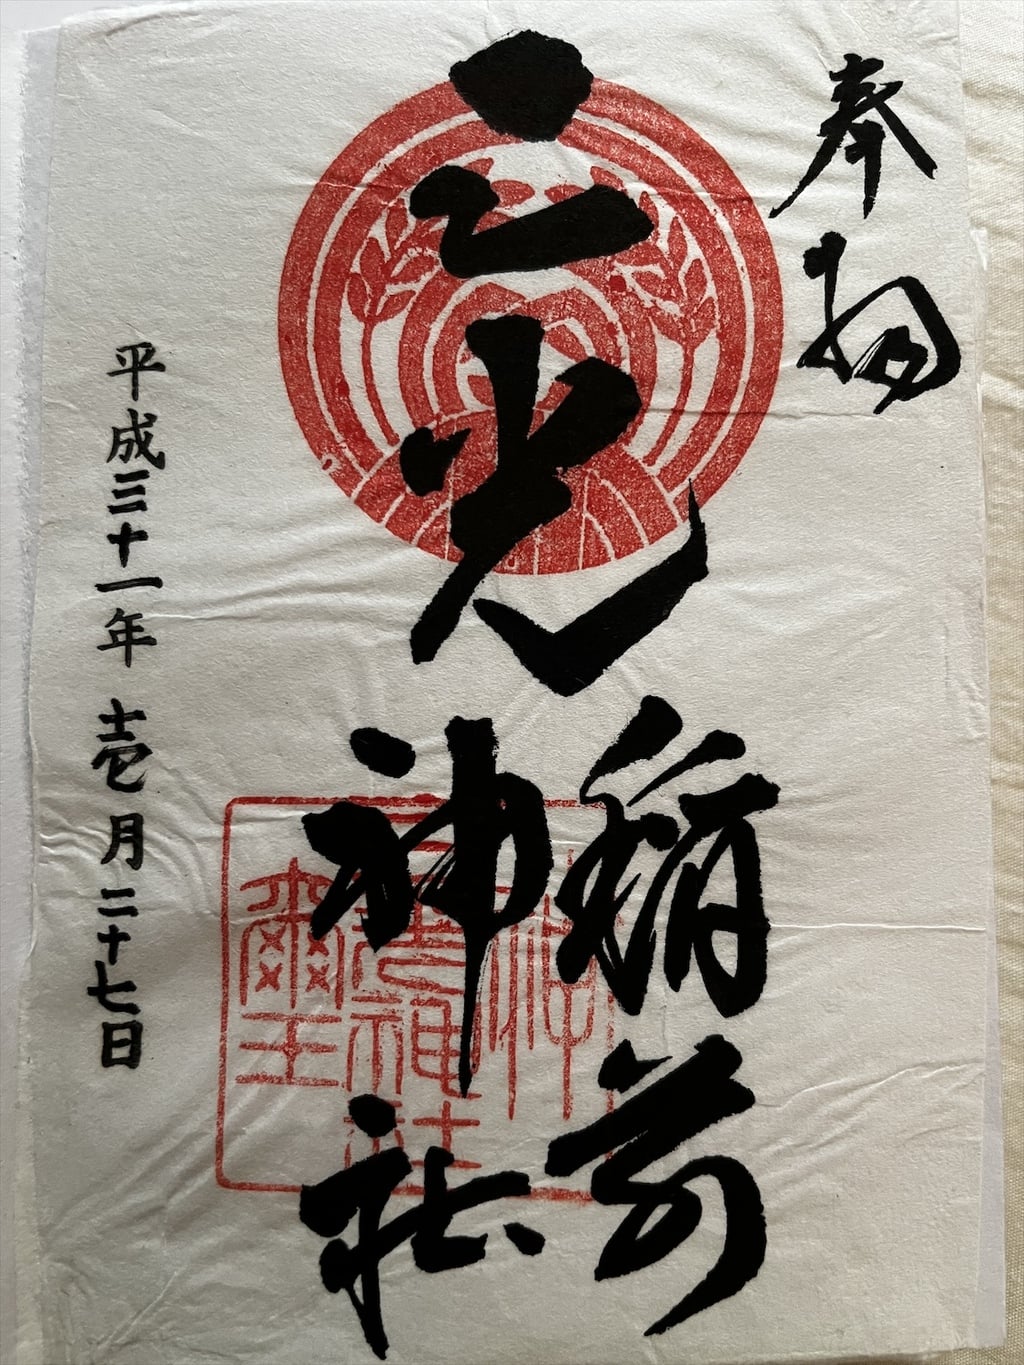 奉拝
三光
稲荷
神社
平成三十一年壱月二十七日